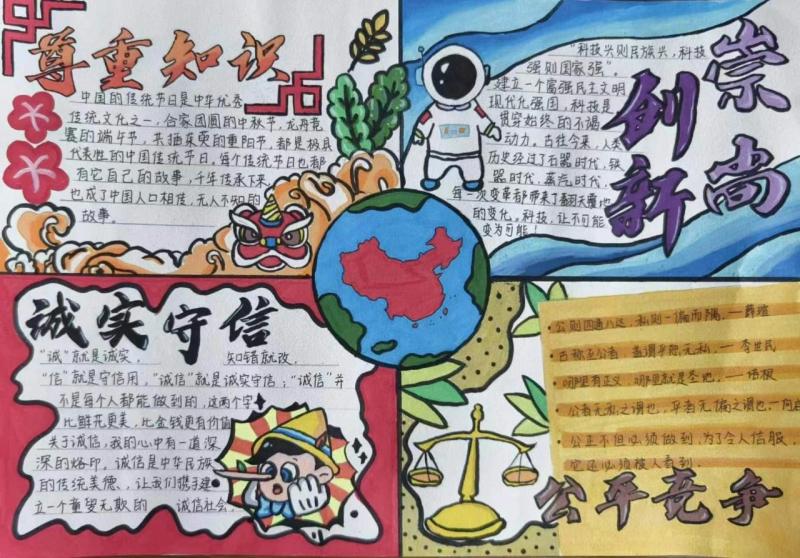 尊重知识
中国的传统节日是中华优秀
传统文化之一，合家团圆的中秋节，龙舟竞
赛的端午节，共插茱萸的重阳节，都是极具
代表性的中国传统节日，每个传统节日也都
有它自己的故事，千年传承下来，
也成了中国人口相传，无人不知的
故事。
崇尚
创新
"科技兴则民族兴，科技
强则国家强"。
建立一个富强民主文明
现代化强国，科技是
贯穿始终的不竭
动力。古往今来，人类
历史经过了石器时代，铁
器时代，蒸汽时代，
每一次变革都带来了翻天覆地
的变化，科技，让不可能
变为可能！
诚实守信
"诚"就是诚实，知错就改，
"信"就是守信用，"诚信"就是诚实守信；"诚信"并
不是每个人都能做到的，这两个字
比鲜花更美，比金钱更有价值
关于诚信，我的心中有一道深
深的烙印。诚信是中华民族
的传统美德，让我们携手建
立一个童叟无欺的 诚信社会
公则四通八达，私则一偏而隅。——薛瑄
古称至公者，盖谓平恕无私。——李世民
哪里有正义，哪里就是圣地。——培根
公者无私之谓也，平者无偏之谓也。
公正不但必须做到，为了令人信服，
它还必须被人看到。
公平竞争